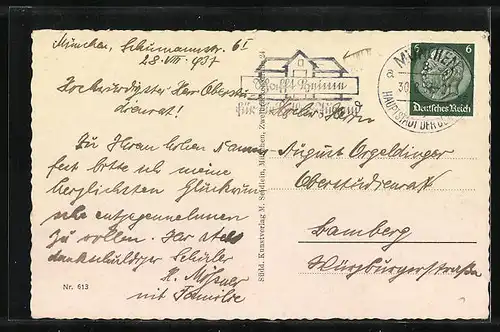 München, Schumannstr. 6I
28.VIII.1937
Hochwürdigster Herr Oberstu-
dienrat!
Zu Ihrem hohen Namens-
feste bitte ich meine
herzlichsten Glückwün-
sche entgegennehmen
zu wollen. Ihr stets
dankschuldiger Schüler
mit Familie
Nr. 613
Südd. Kunstverlag M. Seidlein, München,
Schafft Heime
für
MÜNCHEN
HAUPTSTADT DER
30
6 6
Deutsches Reich
August Orgeldinger
Oberstudienrat
Bamberg
Würzburgerstraße